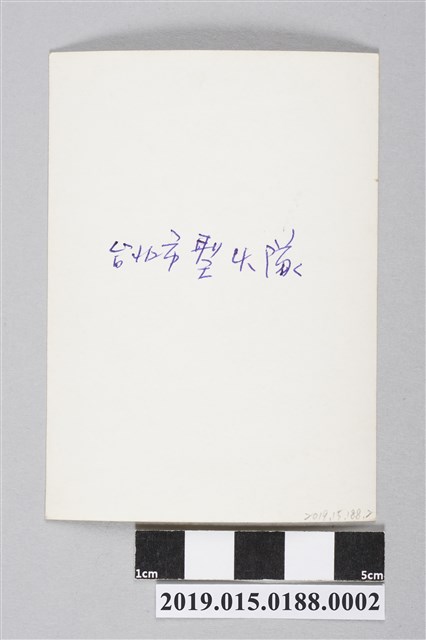 台北市型大隊
2019.15.188.2
1cm
5cm
2019.015.0188.0002